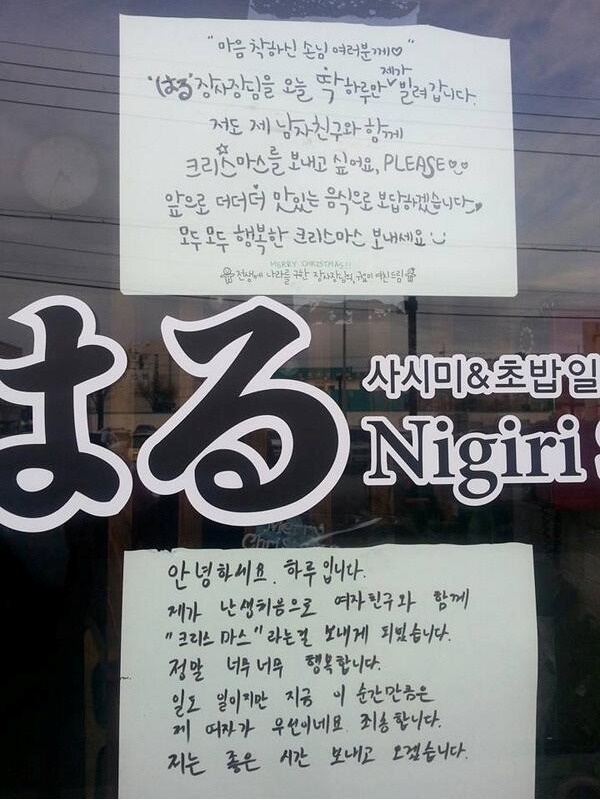 "마음 착하신 손님 여러분께♡"
'はる' 장사장님을 오늘 딱 하루만 제가 빌려갑니다.
저도 제 남자친구와 함께
크리스마스를 보내고 싶어요, PLEASE
앞으로 더더더 맛있는 음식으로 보답하겠습니다.
모두모두 행복한 크리스마스 보내세요
MERRY CHRISTMAS!!
전생에 나라를 구한 장사장님의 여친드림
はる
사시미&초밥 일
Nigiri S
Merry
Christ
안녕하세요. 하루입니다.
제가 난생처음으로 여자친구와 함께
"크리스마스"라는걸 보내게 되빘습니다.
정말 너무너무 행복합니다.
일도 일이지만 지금 이 순간만큼은
제 여자가 우선이네요 죄송합니다.
저는 좋은 시간 보내고 오겠습니다.